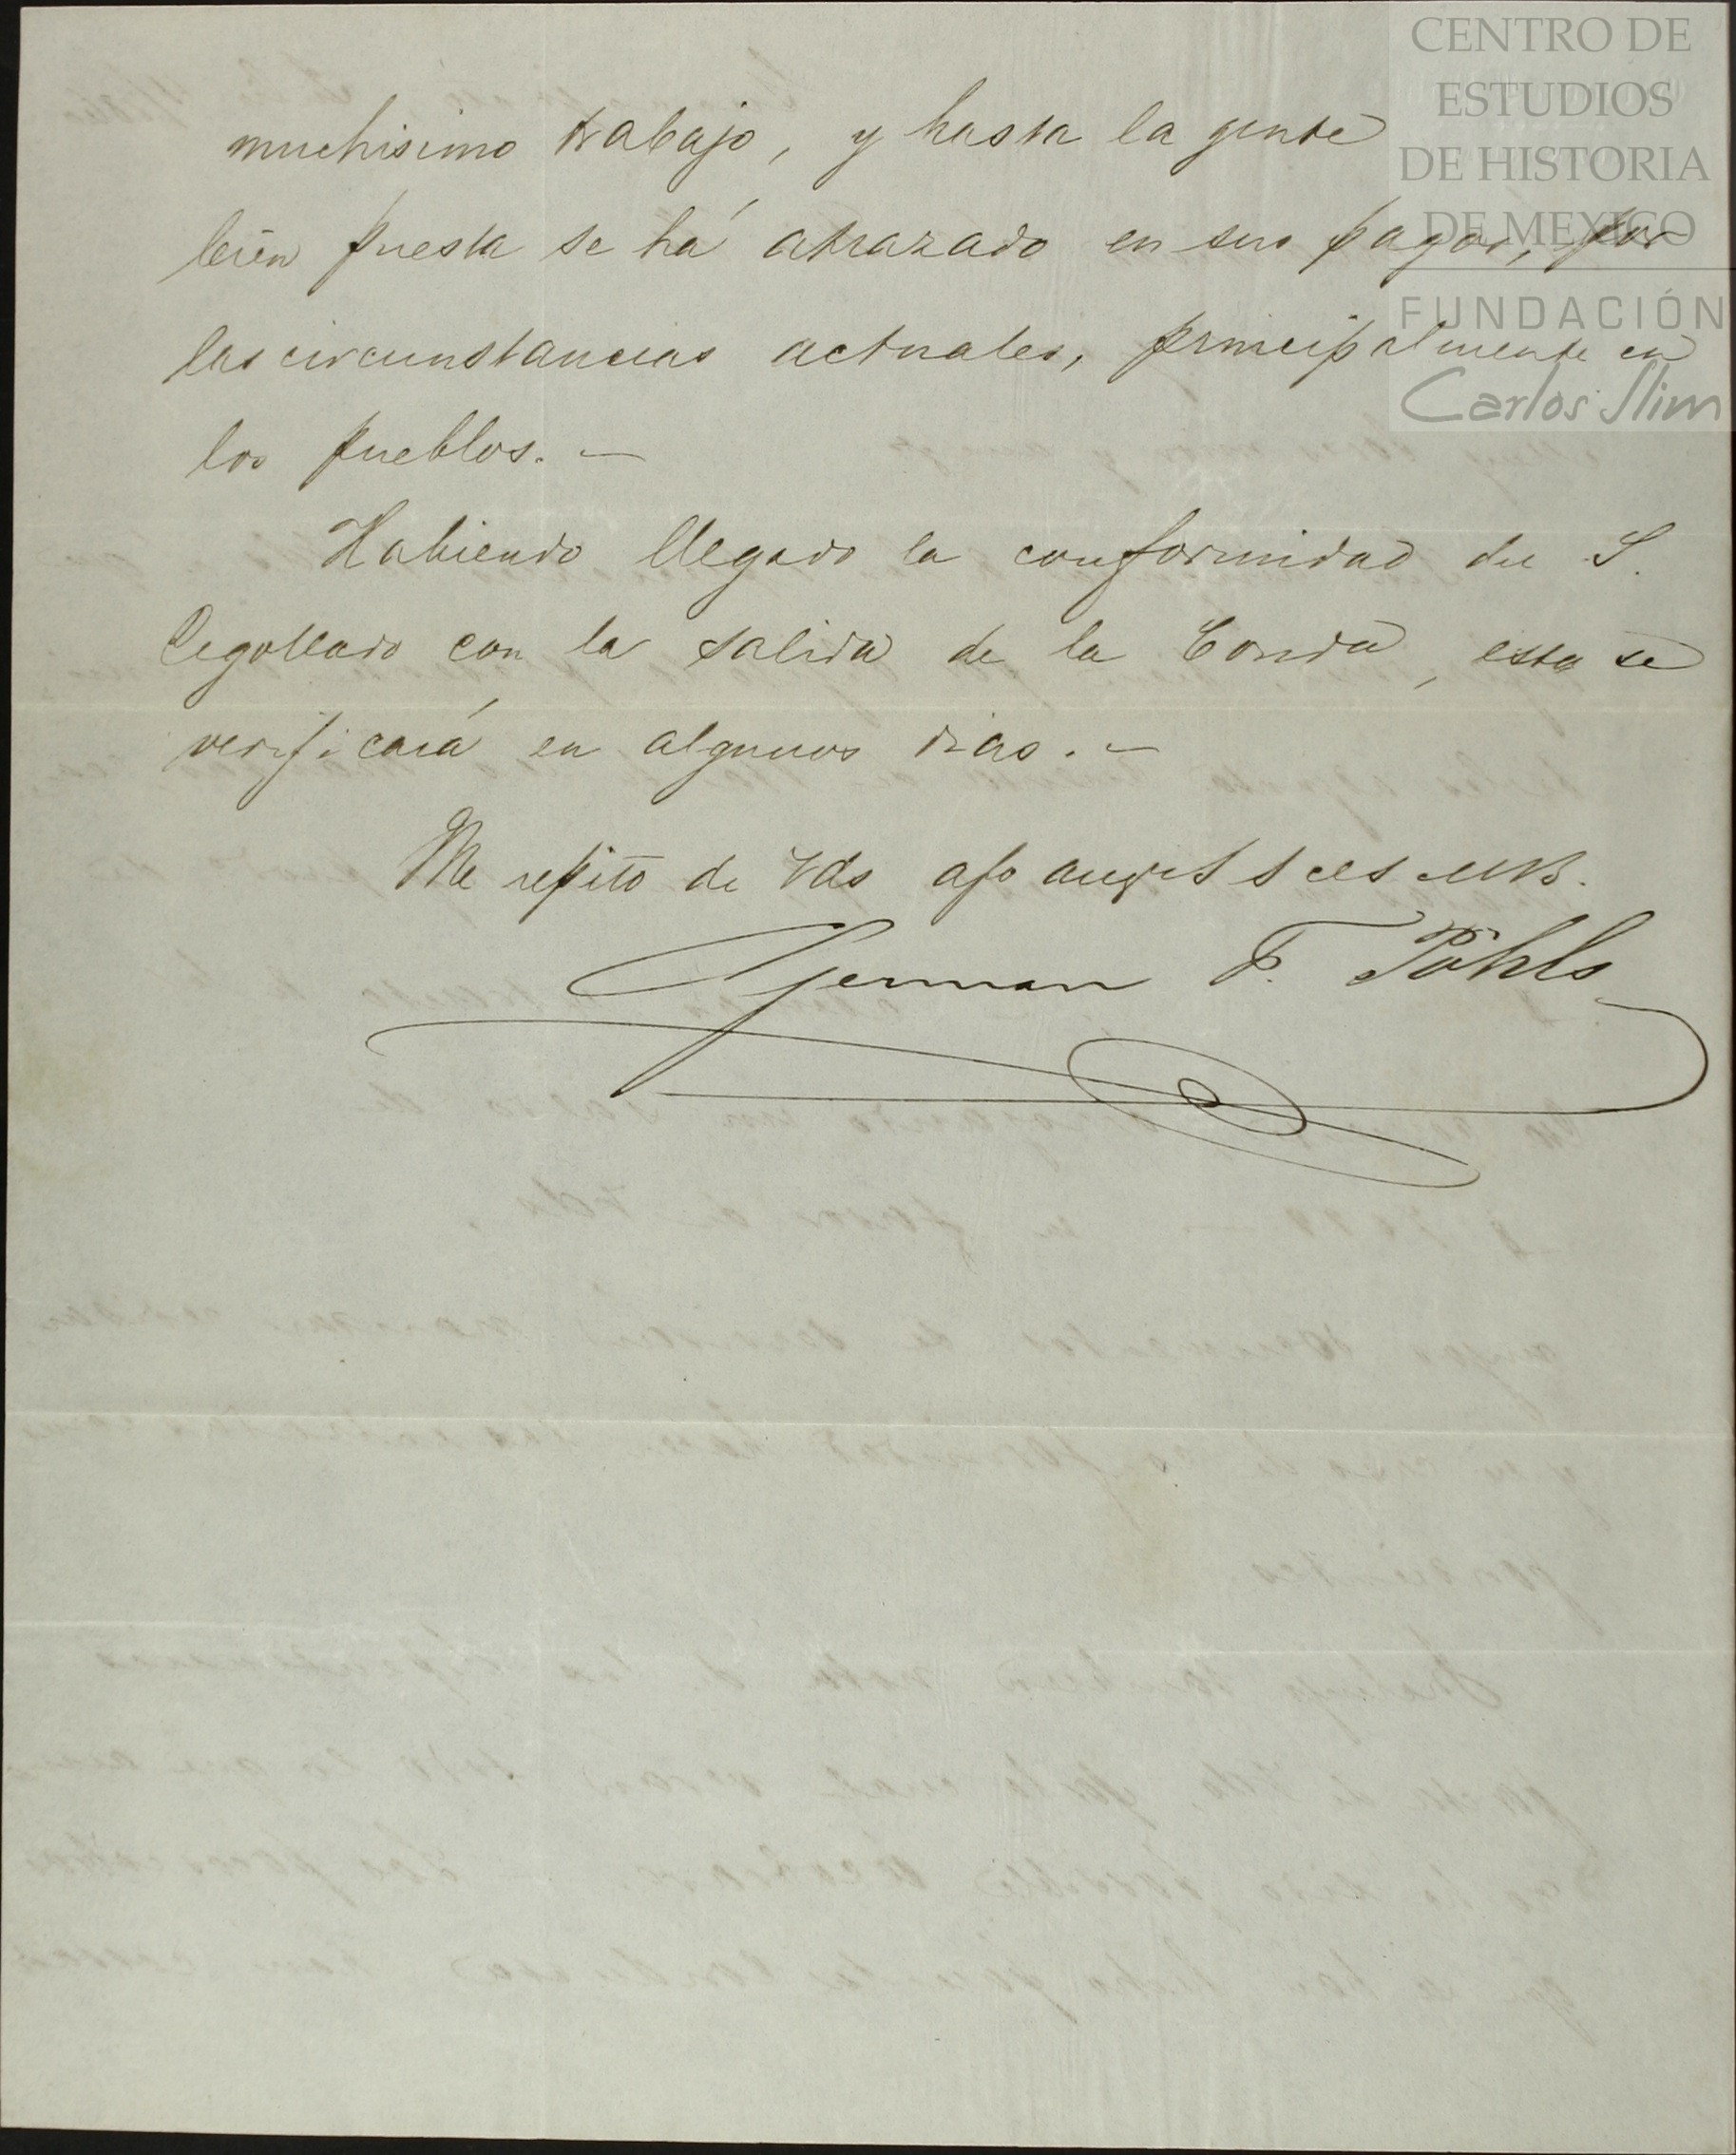 CENTRO DE
ESTUDIOS
DE HISTORIA
DE MEXICO
FUNDACIÓN
Carlos Slim
muchisimo trabajo, y hasta la gente
bién puesta se há atrazado en sus pagos, por
las circunstancias actuales, principalmente en
los pueblos. —
Habiendo llegado la conformidad del S.
Degollado con la salida de la Conda, esta se
verificará en algunos dias. —
Me repito de Vds afo S S
German F. Pöhls